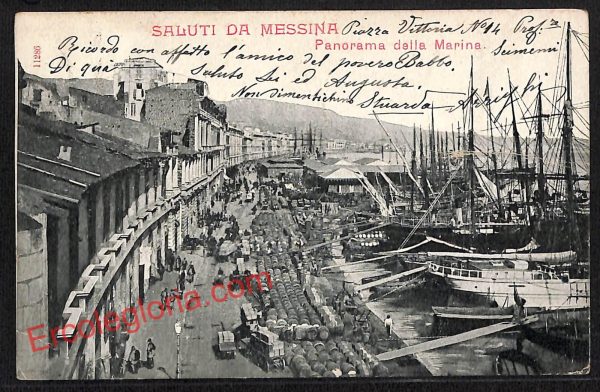 SALUTI DA MESSINA
Panorama della Marina.
11286
Piazza Vittoria No 14 Prof.ra
Scimemi
Ricordo con affetto l'amico del povero Babbo.
Di quà saluto Lei ed Augusta.
Non dimentichino
Ercolegloria.com